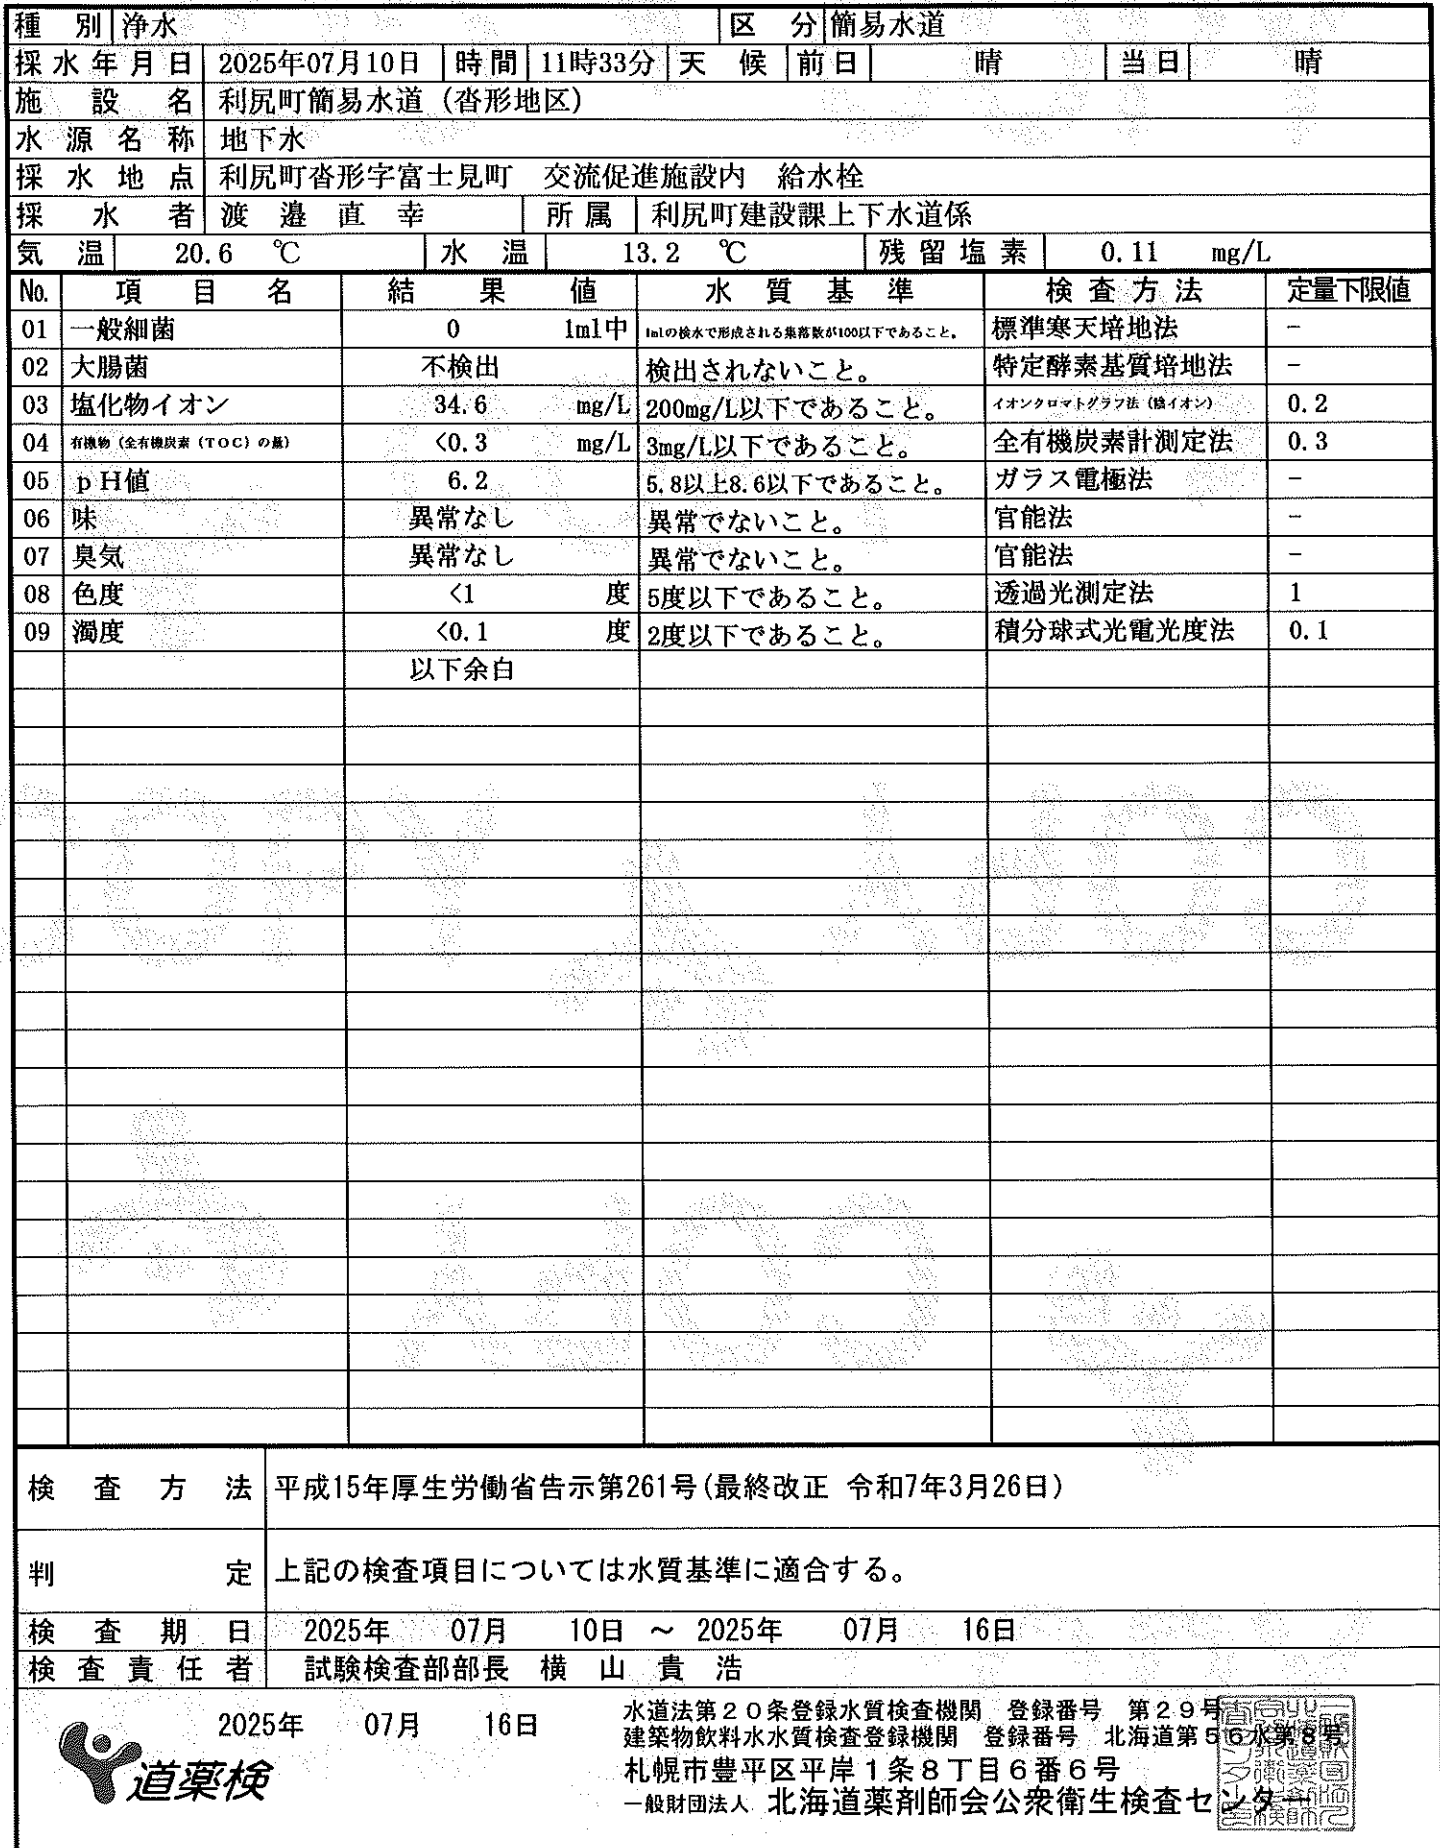 種 別 浄水 区 分 簡易水道
採水年月日 2025年07月10日 時間 11時33分 天 候 前日 晴 当日 晴
施 設 名 利尻町簡易水道（沓形地区）
水 源 名 称 地下水
採 水 地 点 利尻町沓形字富士見町 交流促進施設内 給水栓
採 水 者 渡 邉 直 幸 所属 利尻町建設課上下水道係
気 温 20.6 ℃ 水 温 13.2 ℃ 残留塩素 0.11 mg/L
No. 項 目 名 結 果 値 水 質 基 準 検査方法 定量下限値
01 一般細菌 0 1ml中 1mlの検水で形成される集落数が100以下であること。 標準寒天培地法 -
02 大腸菌 不検出 検出されないこと。 特定酵素基質培地法 -
03 塩化物イオン 34.6 mg/L 200mg/L以下であること。 イオンクロマトグラフ法（陰イオン） 0.2
04 有機物（全有機炭素（TOC）の量） <0.3 mg/L 3mg/L以下であること。 全有機炭素計測定法 0.3
05 pH値 6.2 5.8以上8.6以下であること。 ガラス電極法 -
06 味 異常なし 異常でないこと。 官能法 -
07 臭気 異常なし 異常でないこと。 官能法 -
08 色度 <1 度 5度以下であること。 透過光測定法 1
09 濁度 <0.1 度 2度以下であること。 積分球式光電光度法 0.1
以下余白
検 査 方 法 平成15年厚生労働省告示第261号(最終改正 令和7年3月26日)
判 定 上記の検査項目については水質基準に適合する。
検 査 期 日 2025年 07月 10日 ～ 2025年 07月 16日
検 査 責 任 者 試験検査部部長 横 山 貴 浩
2025年 07月 16日
水道法第20条登録水質検査機関 登録番号 第29号
建築物飲料水水質検査登録機関 登録番号 北海道第56水第8号
札幌市豊平区平岸1条8丁目6番6号
一般財団法人 北海道薬剤師会公衆衛生検査センター
道薬検